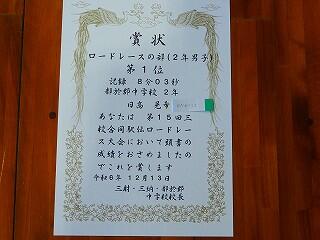 賞状
ロードレースの部(2年男子)
第1位
記録 8分03秒
都於郡中学校 2年
日高 晃幸
あなたは 第15回三
校合同駅伝ロードレー
ス大会において頭書の
成績をおさめましたの
でこれを賞します
令和6年 12月13日
三財・三納・都於郡
中学校校長